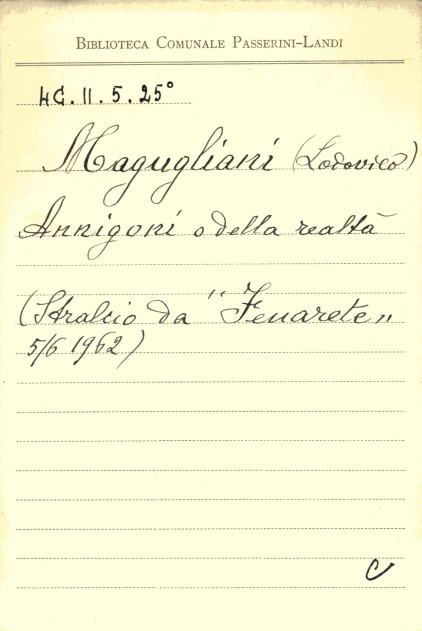 BIBLIOTECA COMUNALE PASSERINI-LANDI
4C.II.5.25°
Magugliani (Lodovico)
Annigoni o della realtà
(Stralcio da "Fenarete"
5/6 1962)
C